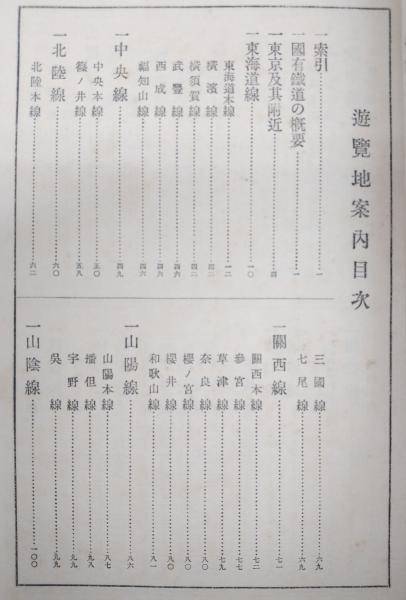 遊覽地案內目次
一索引…………一
一國有鐵道の概要…………一
一東京及其附近…………四
一東海道線…………一〇
東海道本線…………一二
橫濱線…………四二
橫須賀線…………四二
武豐線…………四六
西成線…………四六
福知山線…………四六
一中央線…………四九
中央本線…………五〇
篠ノ井線…………五九
一北陸線…………六〇
北陸本線…………六二
三國線…………六九
七尾線…………六九
一關西線…………七一
關西本線…………七二
參宮線…………七七
草津線…………七九
奈良線…………八〇
櫻ノ宮線…………八〇
櫻井線…………八〇
和歌山線…………八一
一山陽線…………八六
山陽本線…………八七
播但線…………九八
宇野線…………九九
吳線…………九九
一山陰線…………一〇〇